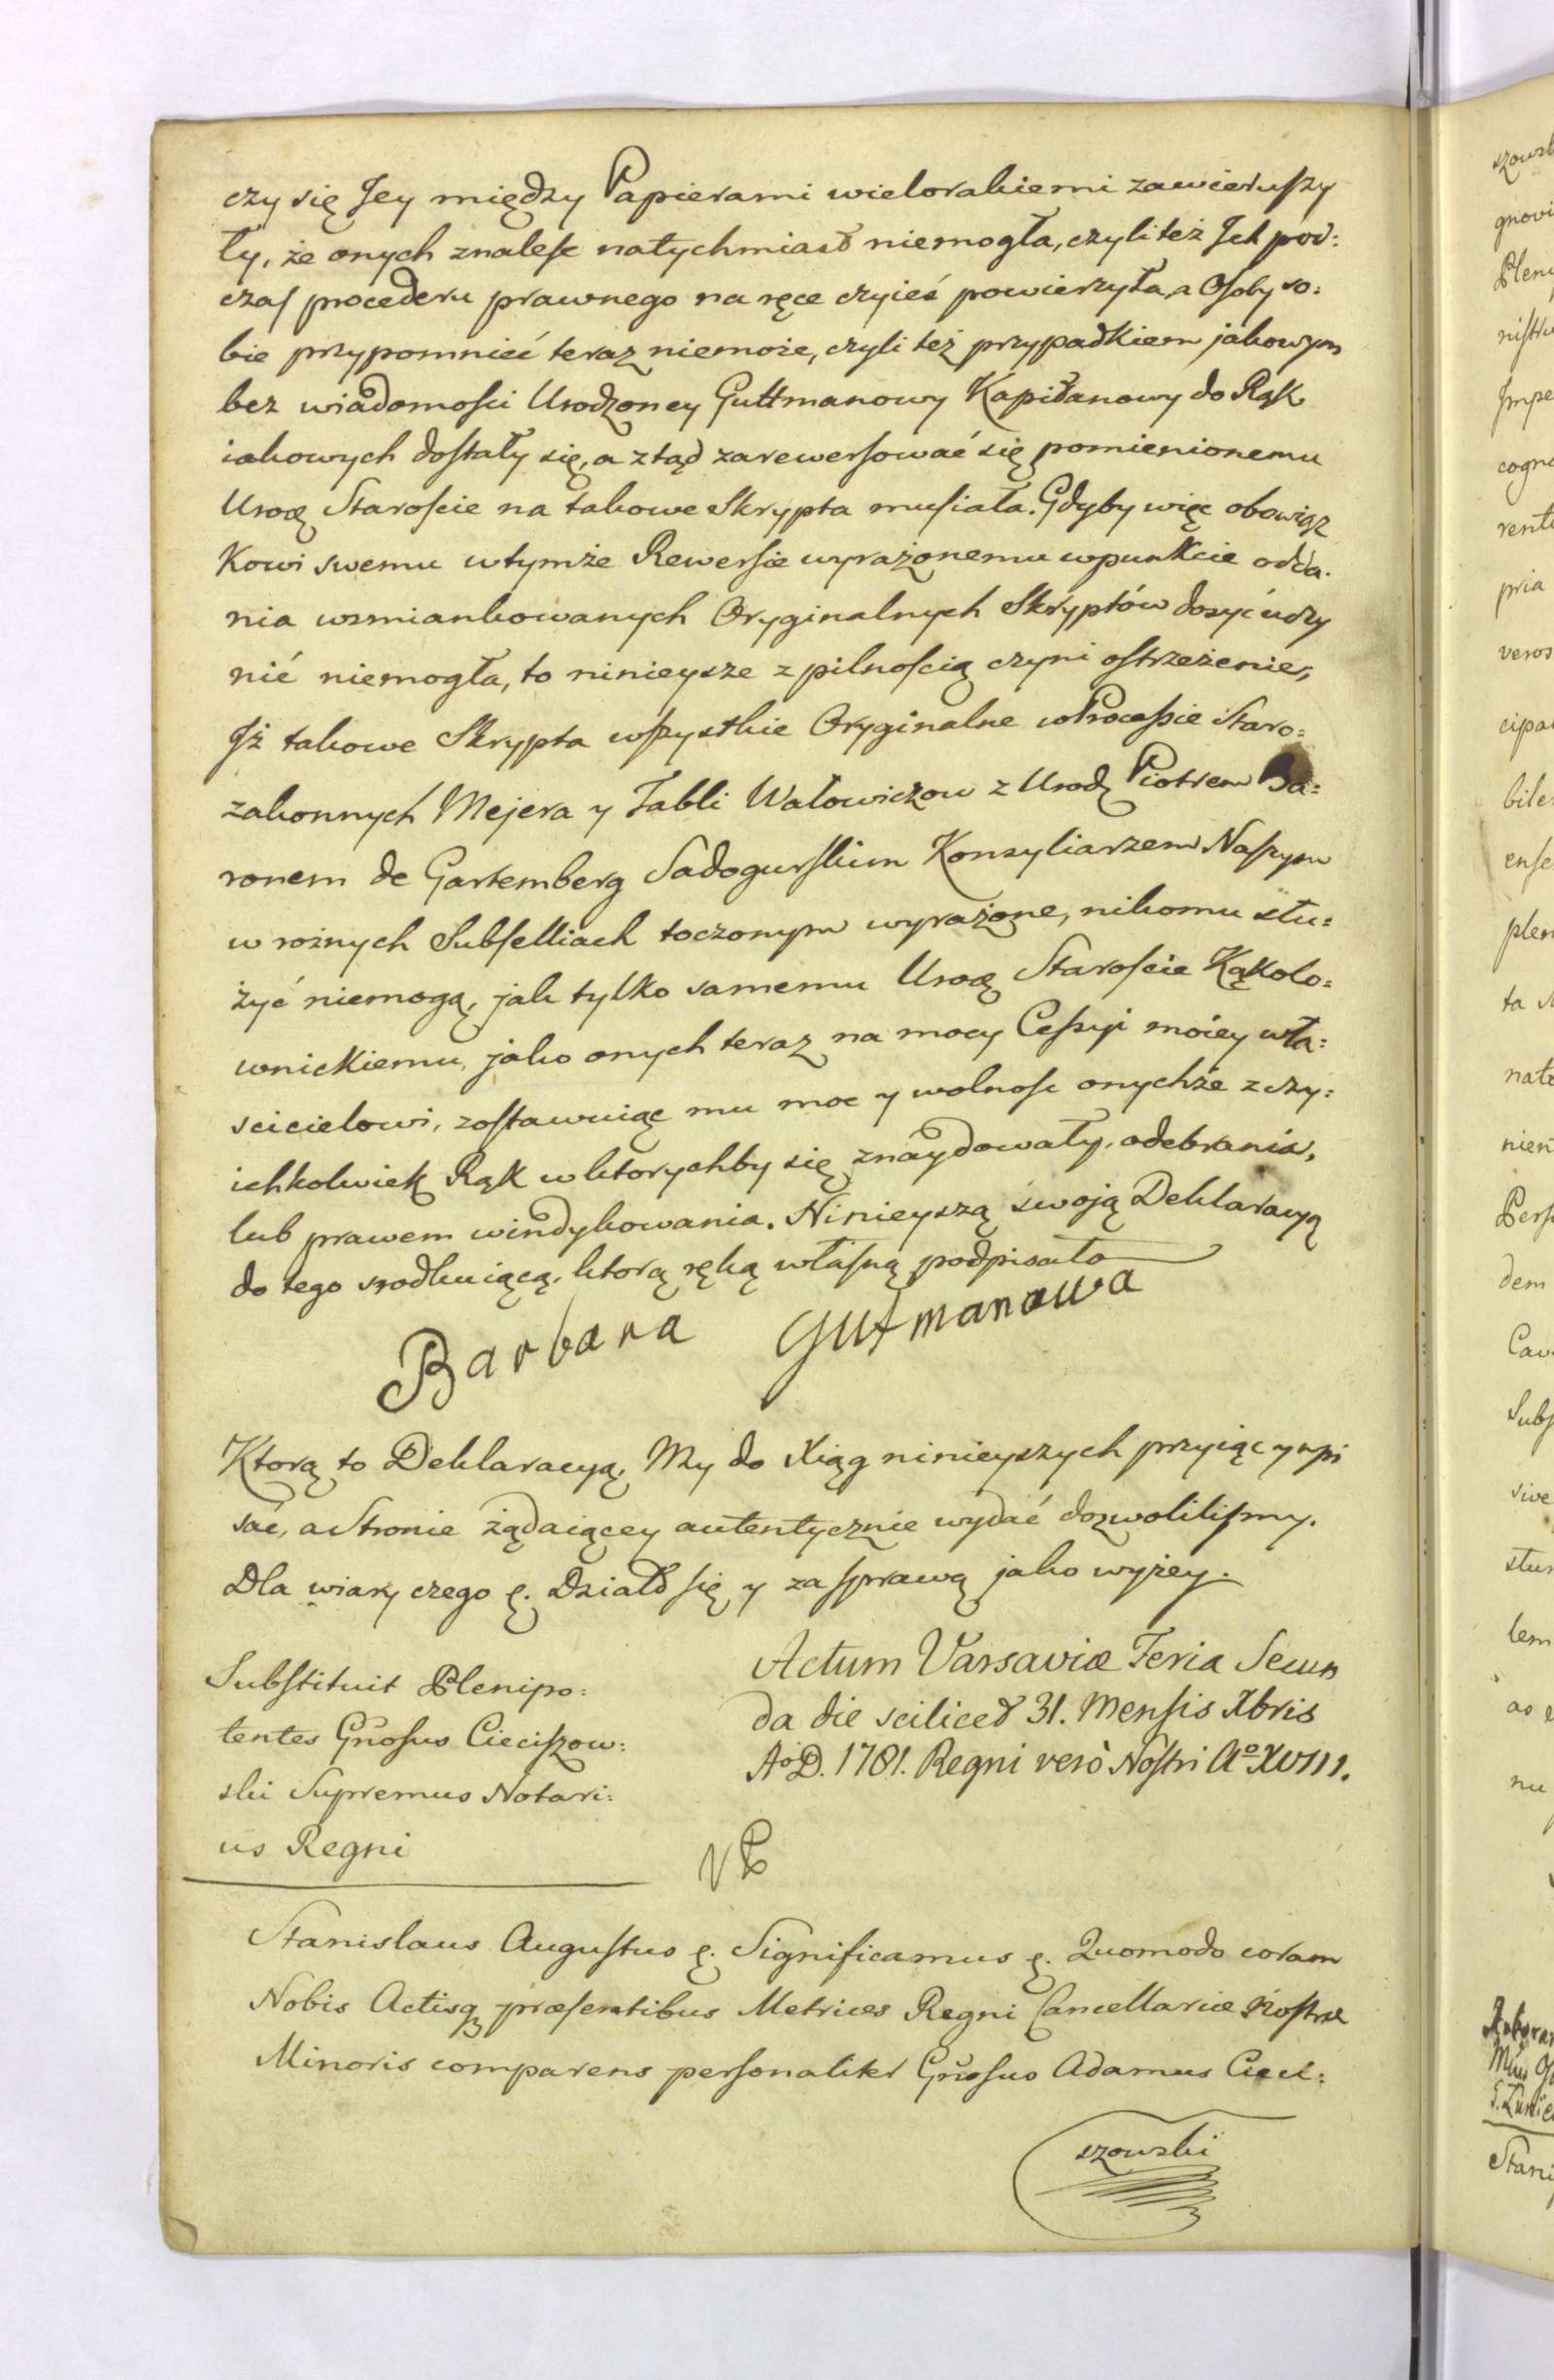 czy się Jey między Papierami wielorakiemi zawieruszy
ły, że onych znalesc natychmiast niemogła, czyli też Ich pod:
czas procederu prawnego na ręce czyieś powierzyła, a Osoby so:
bie przypomnieć teraz niemoże, czyli też przypadkiem jakowym
bez wiadomości Urodzoney Guttmanowy Kapitanowy do Rąk
iakowych dostały się, a ztąd zarewersować się pomienionemu
Urodz Staroście na takowe Skrypta musiała. Gdyby więc obowiąz
kowi swemu wtymże Rewersie wyrażonemu wpunkcie odda:
nia wzmiankowanych Oryginalnych Skryptów dosyć uczy
nić niemogła, to ninieysze z pilnością czyni ostrzeżenie,
Jż takowe Skrypta wszystkie Oryginalne wProcessie Staro:
zakonnych Mejera y Jabli Wałowiczow z Urodz Piotrem Ba:
ronem de Gartemberg Sadogurskim Konsyliarzem Naszym
w rożnych Subselliach toczonym wyrażone, nikomu słu:
żyć niemogą, jak tylko samemu Urodz Staroście Kąkolo:
wnickiemu, jako onych teraz na mocy Cessyi moiey wła:
scicielowi, zostawuiąc mu moc y wolnosc onychże z czy:
ichkolwiek Rąk wktorychby się znaydowały, odebrania,
lub prawem windykowania. Ninieyszą swoją Deklaracyą
do tego srodkuiącą, ktorą ręką własną podpisała
Barbara Gutmanowa
Ktorą to Deklaracyą, My do Xiąg ninieyszych przyiąc y wpi
sać, a Stronie żądaiącey autentycznie wydać dozwolilismy.
Dla wiary czego ę. Działo się y za sprawą jako wyżey.
Actum Varsaviæ Feria Secun
da die scilicet 31. Mensis Xbris
Ao D. 1781. Regni verò Nostri Ao XVIII.
Substituit Plenipo:
tentes Gnosus Cieciszow:
ski Supremus Notari:
us Regni
Stanislaus Augustus ę. Significamus ę. Quomodo coram
Nobis Actisq præsentibus Metrices Regni Cancellariæ Nostræ
Minoris comparens personaliter Gnosus Adamus Cieci:
szowski